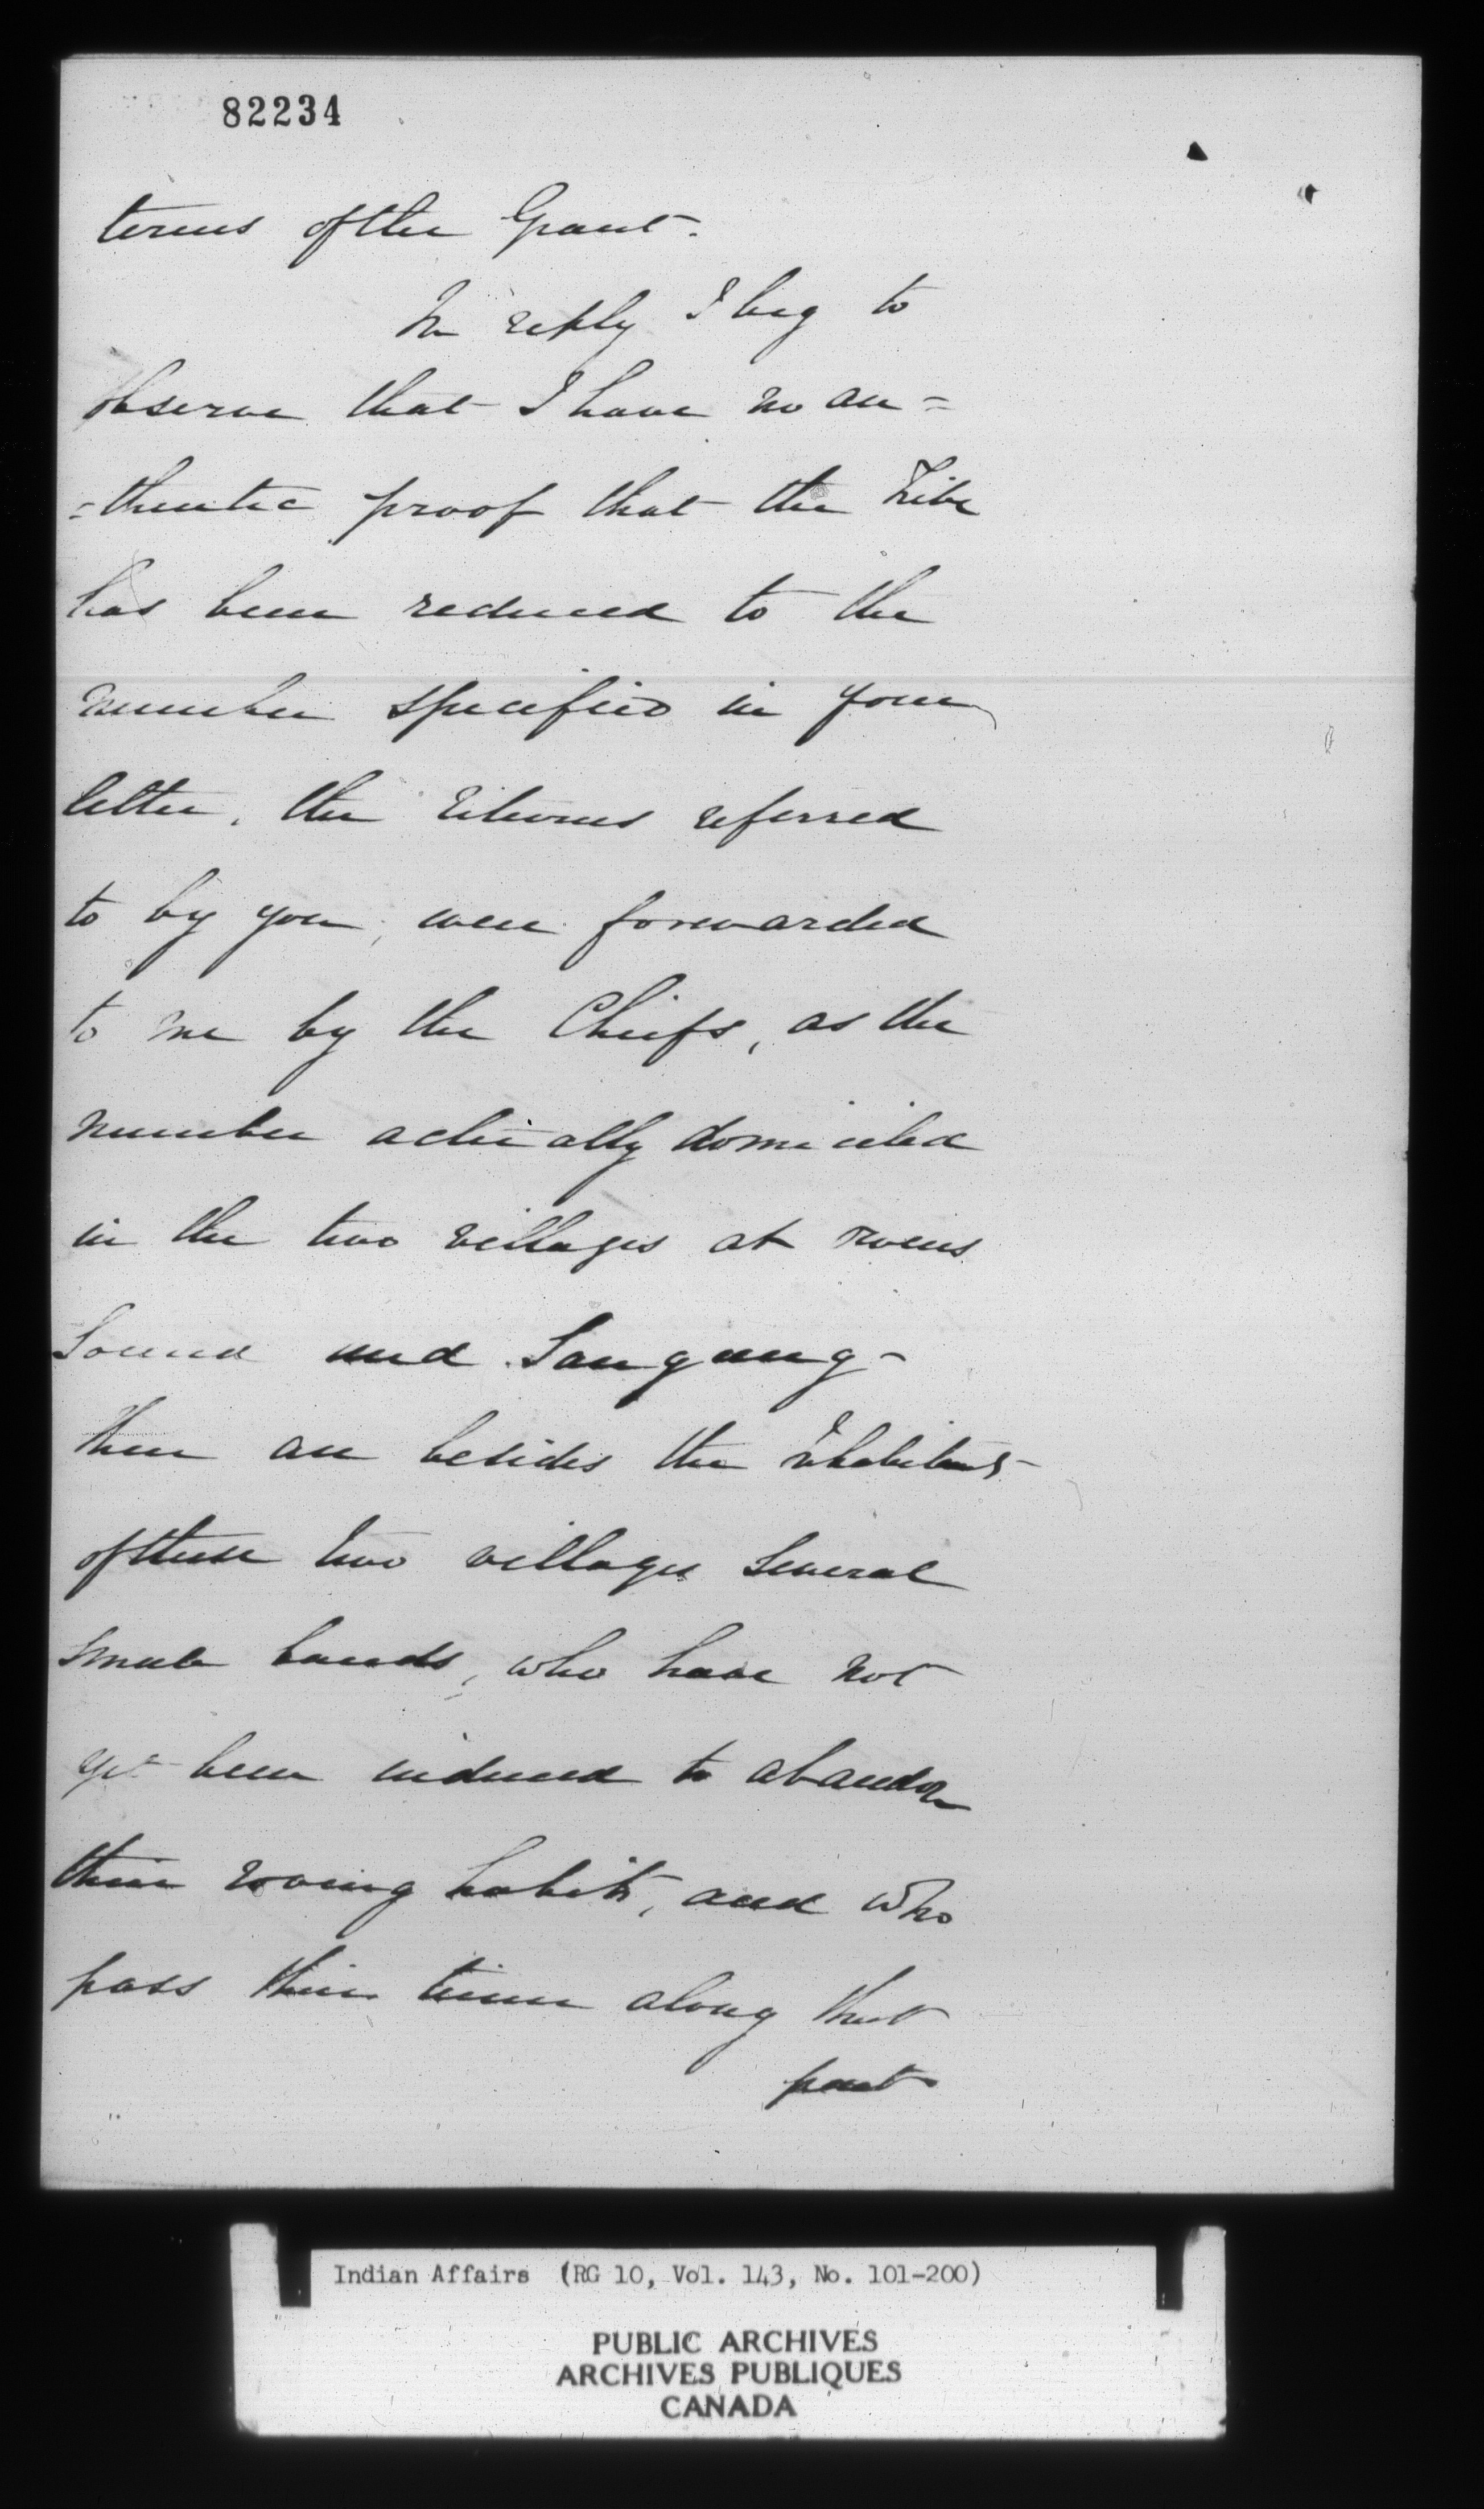 82234
terms of the Grant.
In reply I beg to
observe that I have no au=
=thentic proof that the Tribe
has been reduced to the
number specified in your
letter, the returns referred
to by you, were forwarded
to me by the Chiefs, as the
number actually domiciled
in the two villages at Owens
Sound and Saugung-
there are besides the Inhabitants
of these two villages several
small bands, who have not
yet been induced to abandon
their roving habits, and who
pass their time along that
part
Indian Affairs (RG 10, Vol. 143, No. 101-200)
PUBLIC ARCHIVES
ARCHIVES PUBLIQUES
CANADA